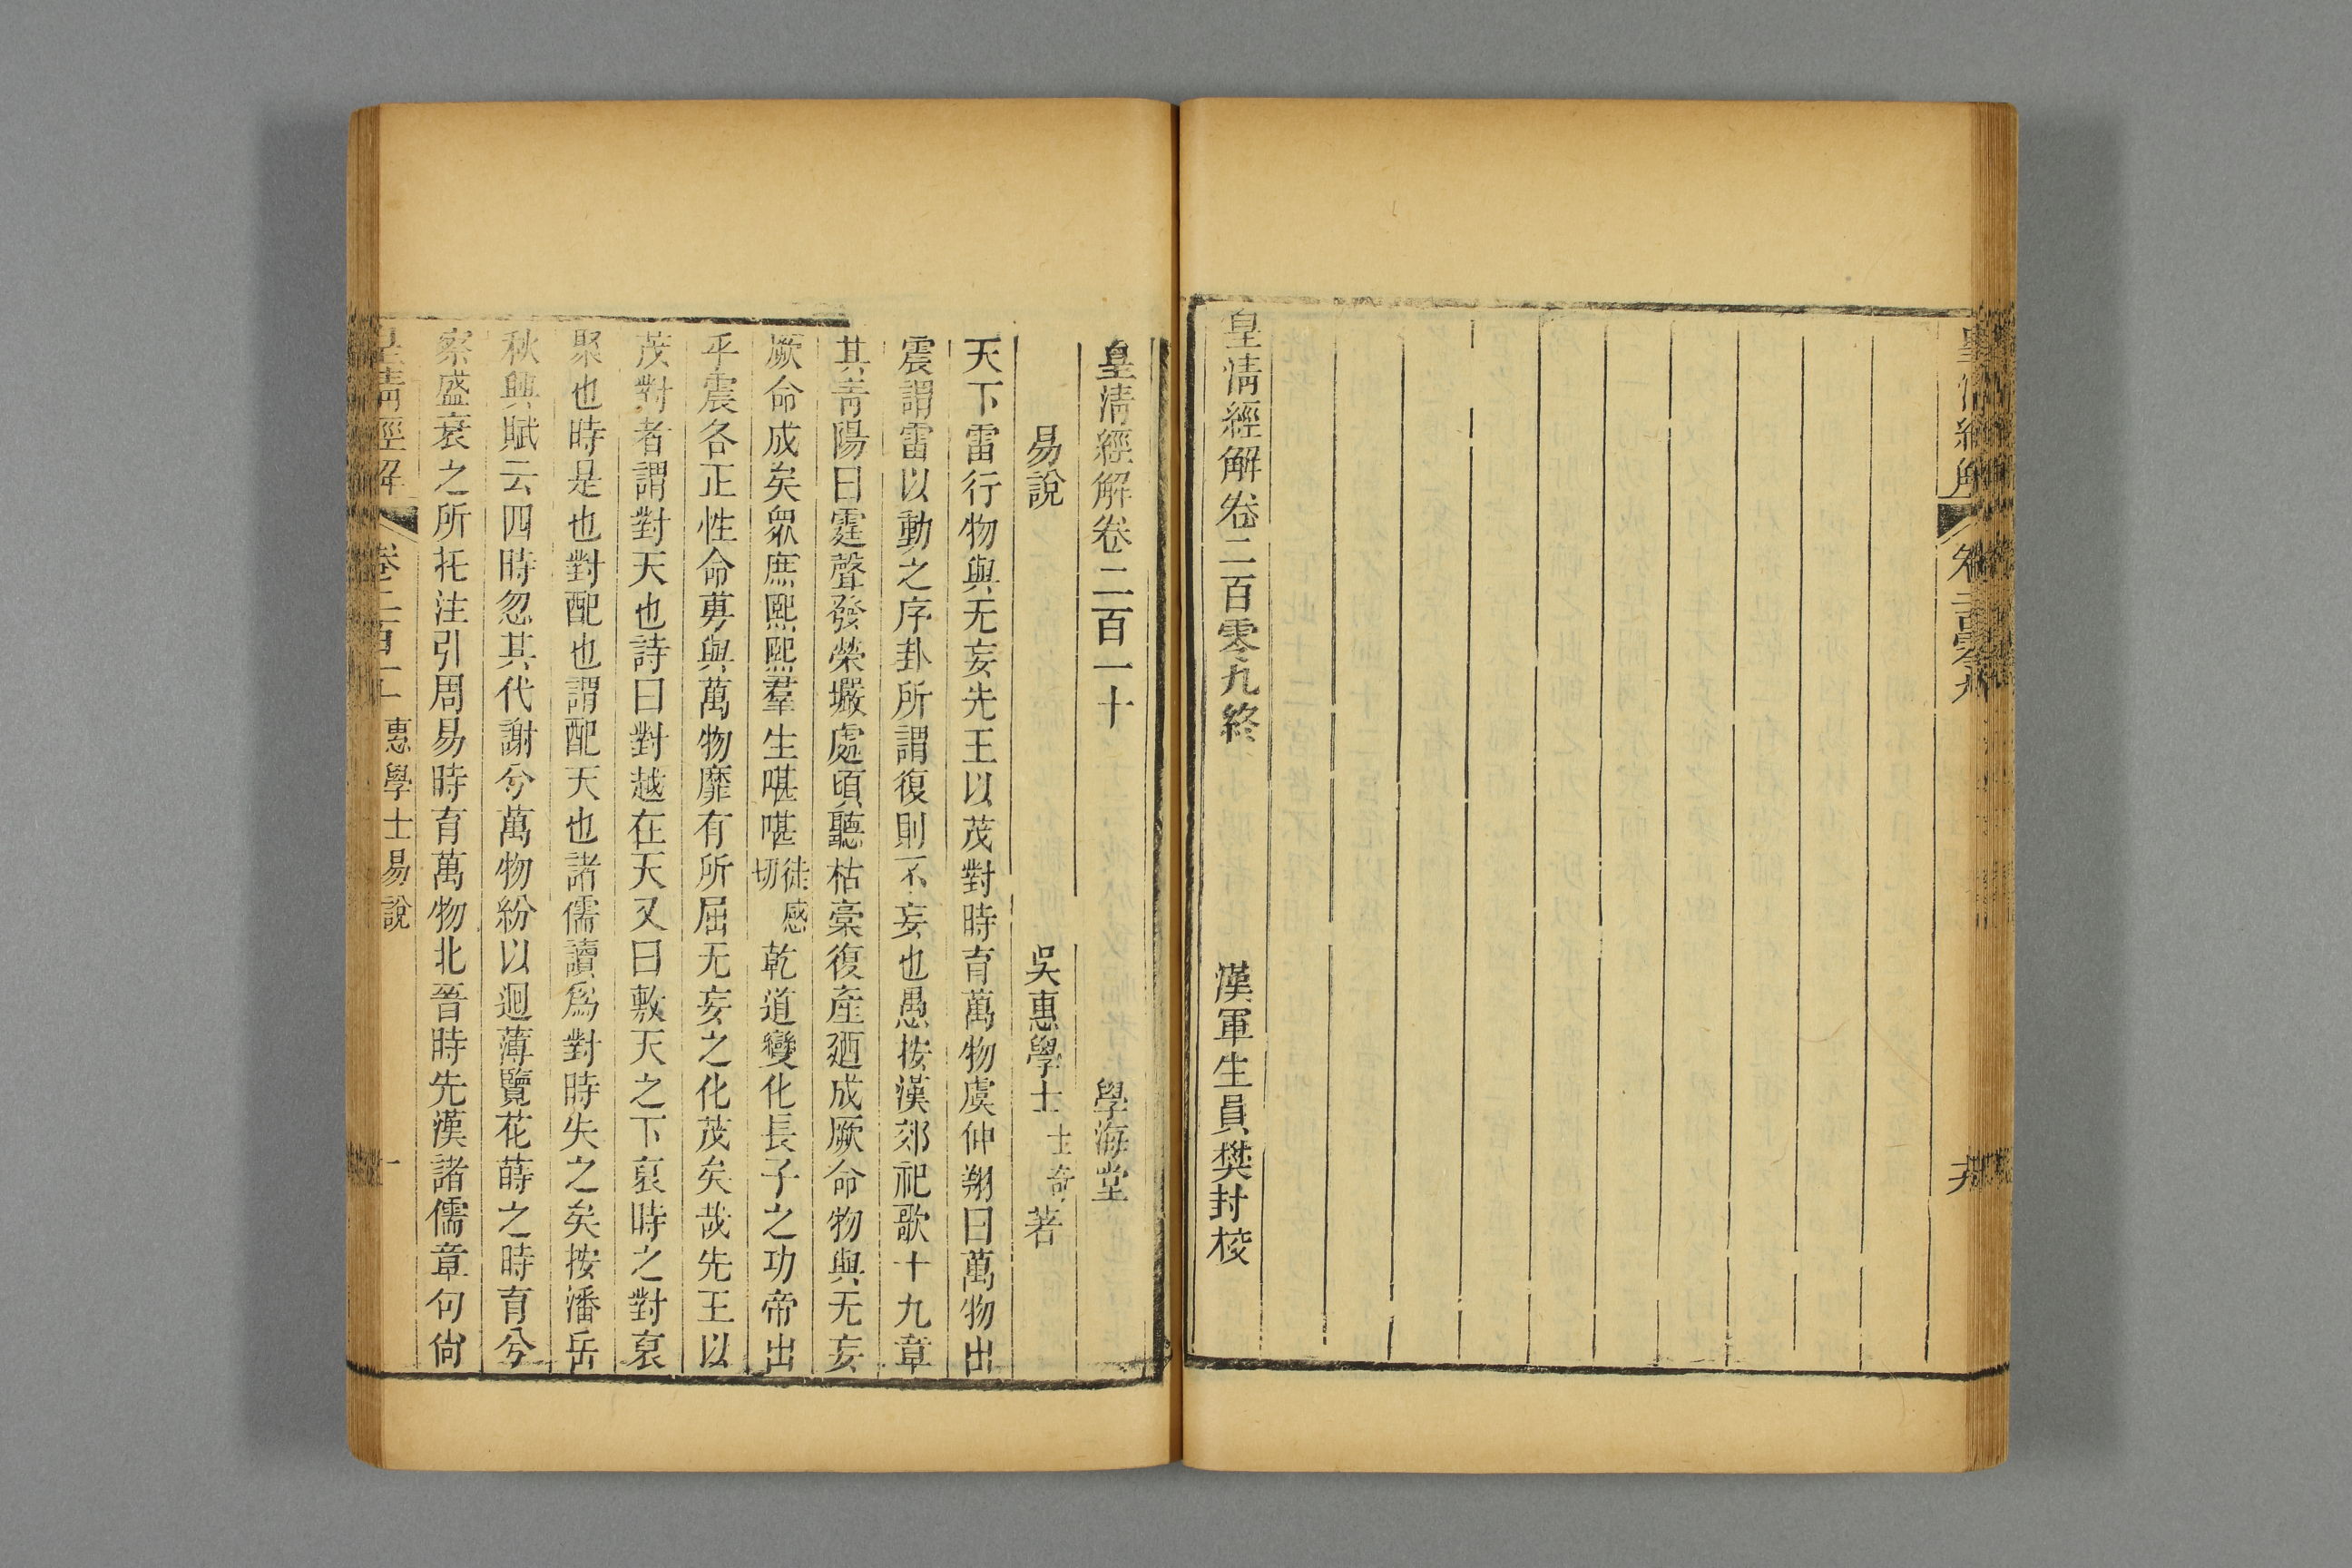 皇清經解
卷二百零九
九
皇清經解卷二百零九終
漢軍生員樊封校
皇清經解卷二百一十
學海堂
易說
吳惠學士士奇著
天下雷行物與无妄先王以茂對時育萬物虞仲翔曰萬物出
震謂雷以動之序卦所謂復則不妄也愚按漢郊祀歌十九章
其青陽曰霆聲發榮壧處頃聽枯槀復產廼成厥命物與无妄
厥命成矣眾庶熙熙羣生啿啿徒感切乾道變化長子之功帝出
乎震各正性命莮與萬物靡有所屈无妄之化茂矣哉先王以
茂對者謂對天也詩曰對越在天又曰敷天之下裒時之對裒
聚也時是也對配也謂配天也諸儒讀爲對時失之矣按潘岳
秋興賦云四時忽其代謝兮萬物紛以迴薄覽花蒔之時育兮
察盛衰之所托注引周易時育萬物北晉時先漢諸儒章句尙
皇清經解
卷二百一十
惠學士易說
一